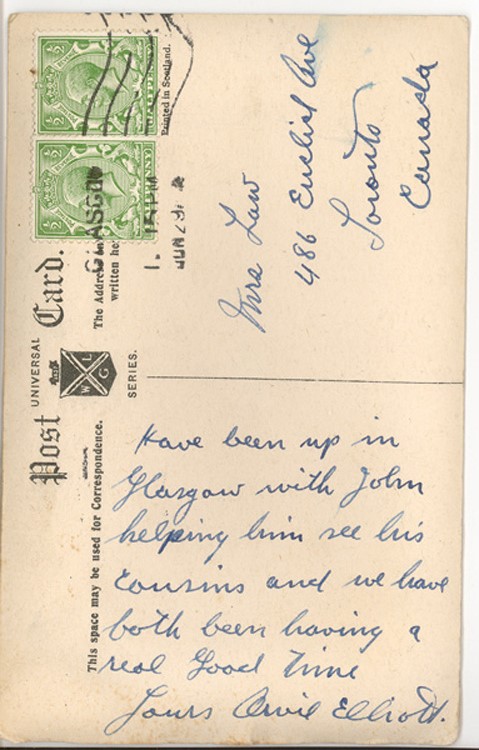 Post Card.
UNIVERSAL
W G L
SERIES.
The Address
written
Printed in Scotland.
GLASGOW
JUN 29
This space may be used for Correspondence.
½
½
½
½
Have been up in
Glasgow with John
helping him see his
Cousins and we have
both been having a
real Good time
Yours Orvil Elliott.
Mrs Law
486 Euclid Ave
Toronto
Canada